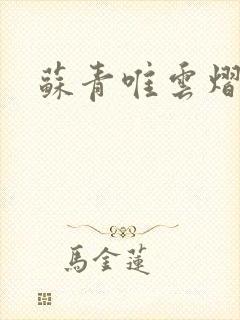 蘇青唯雲熠
馬金蓮